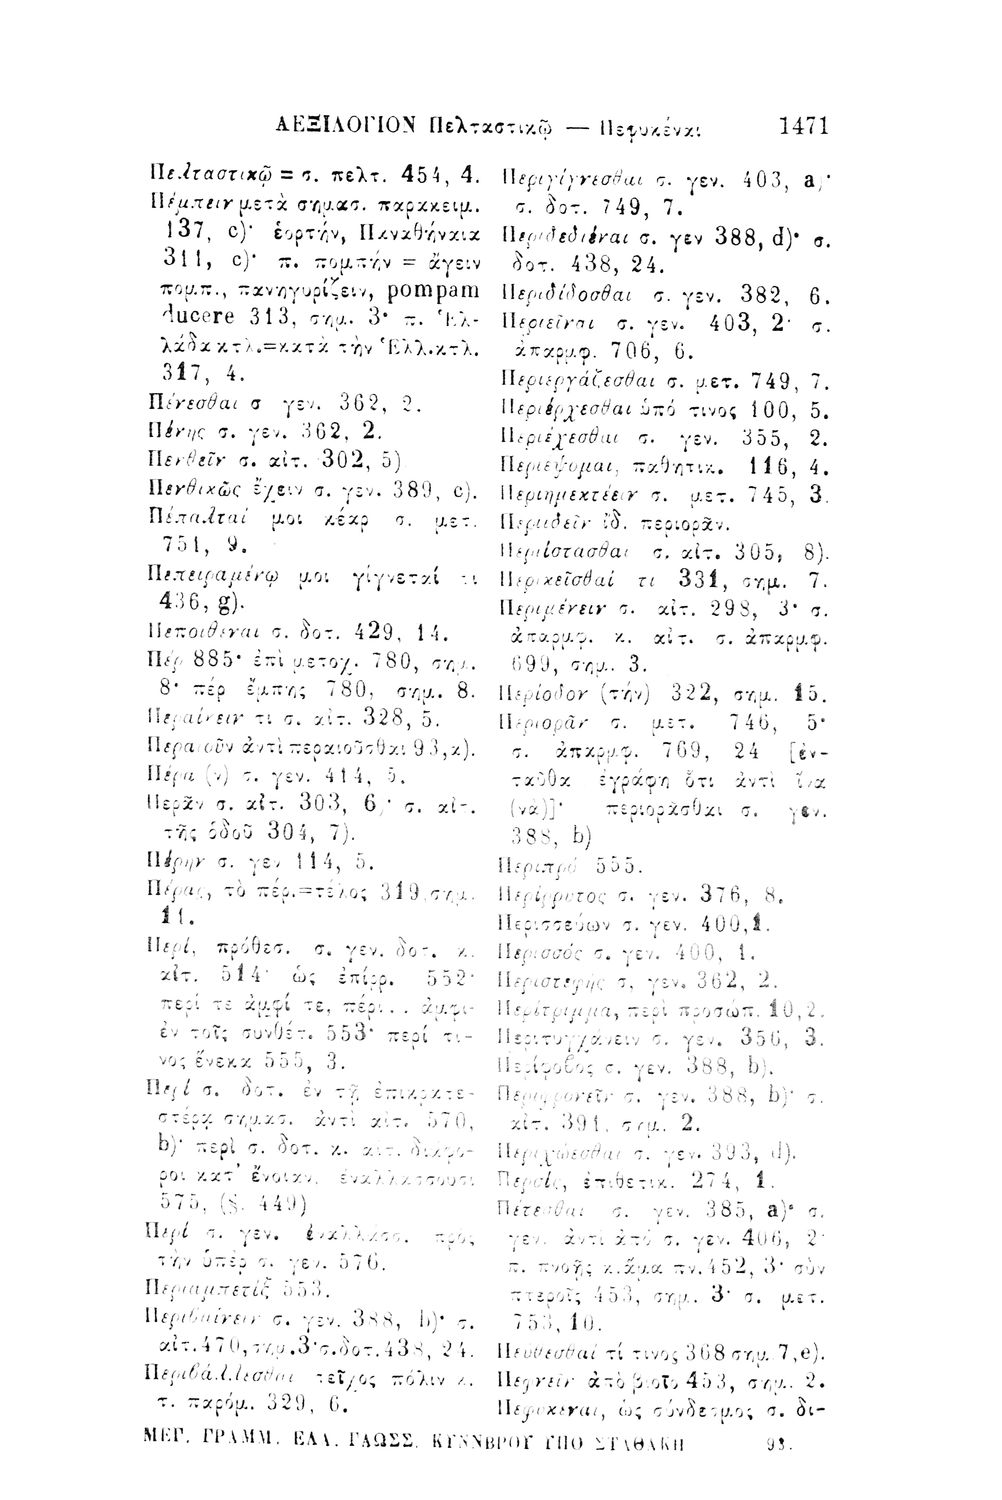 ΛΕΞΙΛΟΓΙΟΝ Πελταστικῷ — Πεφυκέναι 1471
Πελταστικῷ = σ. πελτ. 454, 4.
Πέμπειν μετὰ σημασ. παρακειμ.
137, c)· ἑορτήν, Παναθήναια
311, c)· π. πομπήν = ἄγειν
πομπ., πανηγυρίζειν, pompam
ducere 313, σημ. 3· π. Ἑλ-
λάδα κτλ.=κατὰ τὴν Ἑλλ.κτλ.
317, 4.
Πένεσθαι σ γεν. 362, 2.
Πένης σ. γεν. 362, 2.
Πενθεῖν σ. αἰτ. 302, 5)
Πενθικῶς ἔχειν σ. γεν. 389, c).
Πέπαλταί μοι κέαρ σ. μετ.
751, 9.
Πεπειραμένῳ μοι γίγνεταί τι
436, g).
Πεποιθέναι σ. δοτ. 429, 14.
Πέρ 885· ἐπὶ μετοχ. 780, σημ.
8· πέρ ἔμπης 780, σημ. 8.
Περαίνειν τι σ. αἰτ. 328, 5.
Περαιοῦν ἀντὶ περαιοῦσθαι 93,α).
Πέρα (ν) σ. γεν. 414, 5.
Περᾶν σ. αἰτ. 303, 6,· σ. αἰτ.
τῆς ὁδοῦ 304, 7).
Πέρην σ. γεν 114, 5.
Πέρας, τὸ πέρ.=τέλος 319,σημ.
11.
Περί, πρόθεσ. σ. γεν. δοτ. κ.
αἰτ. 514· ὡς ἐπίρρ. 552·
περί τε ἀμφί τε, πέρι.. ἀμφι-
ἐν τοῖς συνθέτ. 553· περί τι-
νος ἕνεκα 555, 3.
Περί σ. δοτ. ἐν τῇ ἐπικρατε-
στέρᾳ σημασ. ἀντὶ αἰτ. 570,
b)· περὶ σ. δοτ. κ. αἰτ. διάφο-
ροι κατ' ἔνοιαν. ἐναλλάσσουσι
575, (§. 449)
Περί σ. γεν. ἐναλλάσσ. πρὸς
τὴν ὑπέρ σ. γεν. 576.
Περιαμπετίξ 553.
Περιβαίνειν σ. γεν. 388, b)· σ.
αἰτ.470,σημ.3·σ.δοτ.438, 24.
Περιβάλλεσθαι τεῖχος πόλιν κ.
τ. παρόμ. 329, 6.
Περιγίγνεσθαι σ. γεν. 403, a)·
σ. δοτ. 749, 7.
Περιδεδιέναι σ. γεν 388, d)· σ.
δοτ. 438, 24.
Περιδίδοσθαι σ. γεν. 382, 6.
Περιεῖναι σ. γεν. 403, 2· σ.
ἀπαρμφ. 706, 6.
Περιεργάζεσθαι σ. μετ. 749, 7.
Περιέρχεσθαι ὑπό τινος 100, 5.
Περιέχεσθαι σ. γεν. 355, 2.
Περιέψομαι, παθητικ. 116, 4.
Περιημεκτέειν σ. μετ. 745, 3.
Περιιδεῖν ἰδ. περιορᾶν.
Περιίστασθαι σ. αἰτ. 305, 8).
Περικεῖσθαί τι 331, σημ. 7.
Περιμένειν σ. αἰτ. 298, 3· σ.
ἀπαρμφ. κ. αἰτ. σ. ἀπαρμφ.
699, σημ. 3.
Περίοδον (τήν) 322, σημ. 15.
Περιορᾶν σ. μετ. 746, 5·
σ. ἀπαρμφ. 769, 24 [ἐν-
ταῦθα ἐγράφη ὅτι ἀντὶ ἵνα
(νά)]· περιορᾶσθαι σ. γεν.
388, b)
Περιπρό 555.
Περίρρυτος σ. γεν. 376, 8.
Περισσεύων σ. γεν. 400,1.
Περισσός σ. γεν. 400, 1.
Περιστεφής σ. γεν. 362, 2.
Περίτριμμα, περὶ προσώπ. 10,2.
Περιτυγχάνειν σ. γεν. 356, 3.
Περίφοβος σ. γεν. 388, b).
Περιφρονεῖν σ. γεν. 388, b)· σ.
αἰτ. 391, σημ. 2.
Περιχώεσθαι σ. γεν. 393, d).
Περσίς, ἐπιθετικ. 274, 1.
Πέτεσθαι σ. γεν. 385, a)· σ.
γεν. ἀντὶ ἀπό σ. γεν. 406, 2·
π. πνοῇς κ.ἅμα πν.452, 3· σὺν
πτεροῖς 453, σημ. 3· σ. μετ.
753,10.
Πεύθεσθαί τί τινος 368 σημ. 7,e).
Πεφνεῖν ἀπὸ βιοῖο 453, σημ. 2.
Πεφυκέναι, ὡς σύνδεσμος σ. δι-
ΜΕΓ. ΓΡΑΜΜ. ΕΛΛ. ΓΛΩΣΣ. ΚΥΝΝΒΡΟΥ ΥΠΟ ΣΤΑΘΑΚΗ 93.